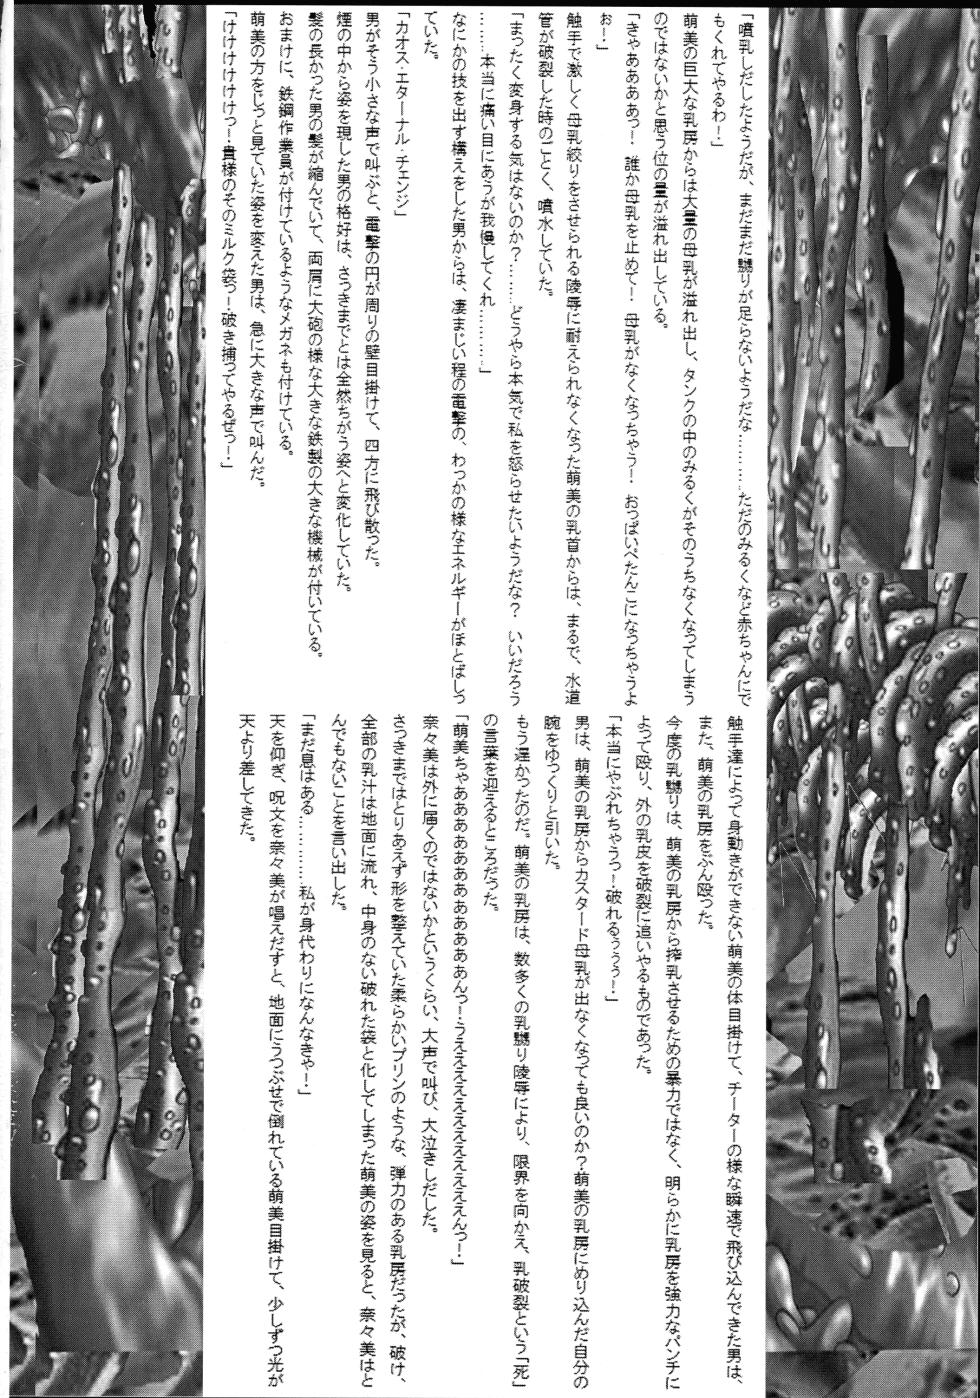 「噴乳しだしたようだが、まだまだ嬲りが足らないようだな…………ただのみるくなど赤ちゃんにで
もくれてやるわ！」
萌美の巨大な乳房からは大量の母乳が溢れ出し、タンクの中のみるくがそのうちなくなってしまう
のではないかと思う位の量が溢れ出している。
「きゃああああっ！　誰か母乳を止めて！　母乳がなくなっちゃう！　おっぱいぺたんこになっちゃうよ
ぉ！」
触手で激しく母乳絞りをさせられる陵辱に耐えられなくなった萌美の乳首からは、まるで、水道
管が破裂した時のごとく、噴水していた。
「まったく変身する気はないのか？………どうやら本気で私を怒らせたいようだな？　いいだろう
………本当に痛い目にあうが我慢してくれ…………」
なにかの技を出す構えをした男からは、凄まじい程の電撃の、わっかの様なエネルギーがほとばしっ
ていた。
「カオス・エターナル・チェンジ」
男がそう小さな声で叫ぶと、電撃の円が周りの壁目掛けて、四方に飛び散った。
煙の中から姿を現した男の格好は、さっきまでとは全然ちがう姿へと変化していた。
髪の長かった男の髪が縮んでいて、両肩に大砲の様な大きな鉄製の大きな機械が付いている。
おまけに、鉄鋼作業員が付けているようなメガネも付けている。
萌美の方をじっと見ていた姿を変えた男は、急に大きな声で叫んだ。
「けけけけけけっ！貴様のそのミルク袋っ！破き捕ってやるぜっ！」
触手達によって身動きができない萌美の体目掛けて、チーターの様な瞬速で飛び込んできた男は、
また、萌美の乳房をぶん殴った。
今度の乳嬲りは、萌美の乳房から搾乳させるための暴力ではなく、明らかに乳房を強力なパンチに
よって殴り、外の乳皮を破裂に追いやるものであった。
「本当にやぶれちゃうっ！破れるぅぅぅ！」
男は、萌美の乳房からカスタード母乳が出なくなっても良いのか？萌美の乳房にめり込んだ自分の
腕をゆっくりと引いた。
もう遅かったのだ。萌美の乳房は、数多くの乳嬲り陵辱により、限界を向かえ、乳破裂という「死」
の言葉を迎えるところだった。
「萌美ちゃあああああああああああああんっ！うえええええええええええええんっ！」
奈々美は外に届くのではないかというくらい、大声で叫び、大泣きしだした。
さっきまではとりあえず形を整えていた柔らかいプリンのような、弾力のある乳房だったが、破け、
全部の乳汁は地面に流れ、中身のない破れた袋と化してしまった萌美の姿を見ると、奈々美はと
んでもないことを言い出した。
「まだ息はある…………私が身代わりになんなきゃ！」
天を仰ぎ、呪文を奈々美が唱えだすと、地面にうつぶせで倒れている萌美目掛けて、少しずつ光が
天より差してきた。